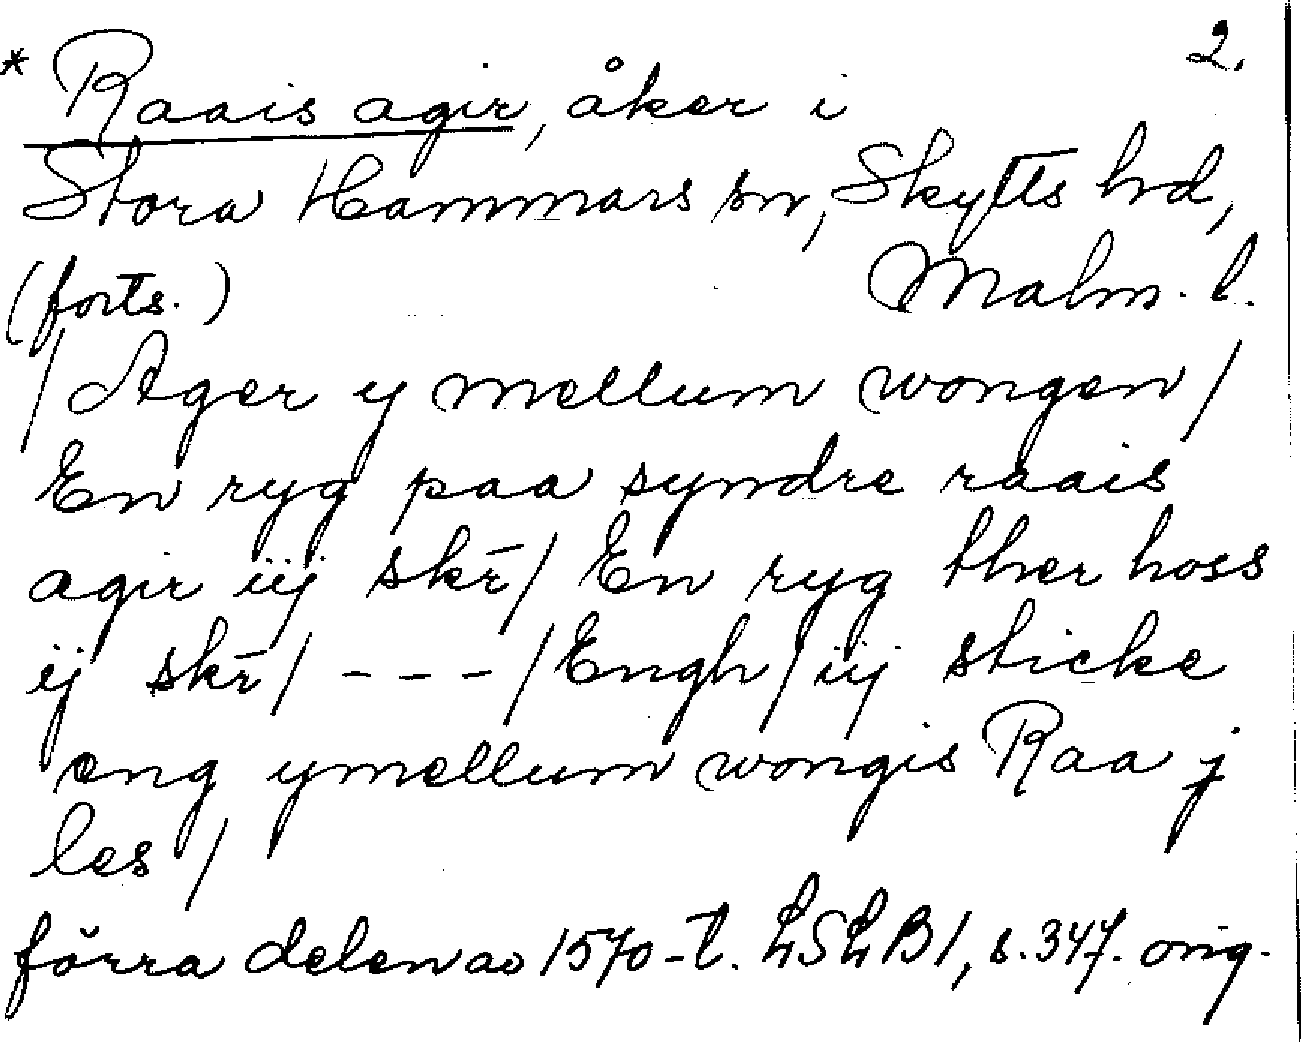 2.
* Raais agir, åker i
Stora Hammars sn, Skytts hd,
(forts.) Malm. l.
/ Ager y mellum wongen /
En ryg paa syndre raais
agir iij skr̄ / En ryg ther hoss
ij skr̄ / - - - / Engh / iij sticke
eng ymellum wongis Raa j
les /
förra delen av 1570-t. LSLB1, s. 347. orig.